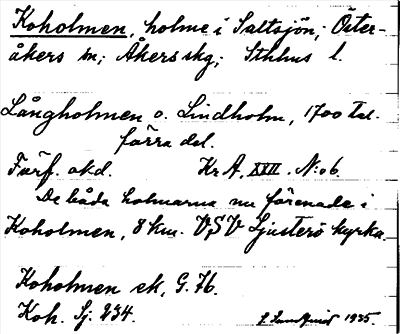 Koholmen, holme i Saltsjön; Öster-
åkers sn; Åkers skg; Sthlms l.
Långholmen o. Lindholm, 1700 tal.
förra del.
Förf. okd. Kr A, XXII. N:o 6.
De båda holmarna nu förenade i
Koholmen, 8 km. VSV Ljusterö kyrka.
Koholmen ek, G. 76.
Koh. Sj. 234.
1935